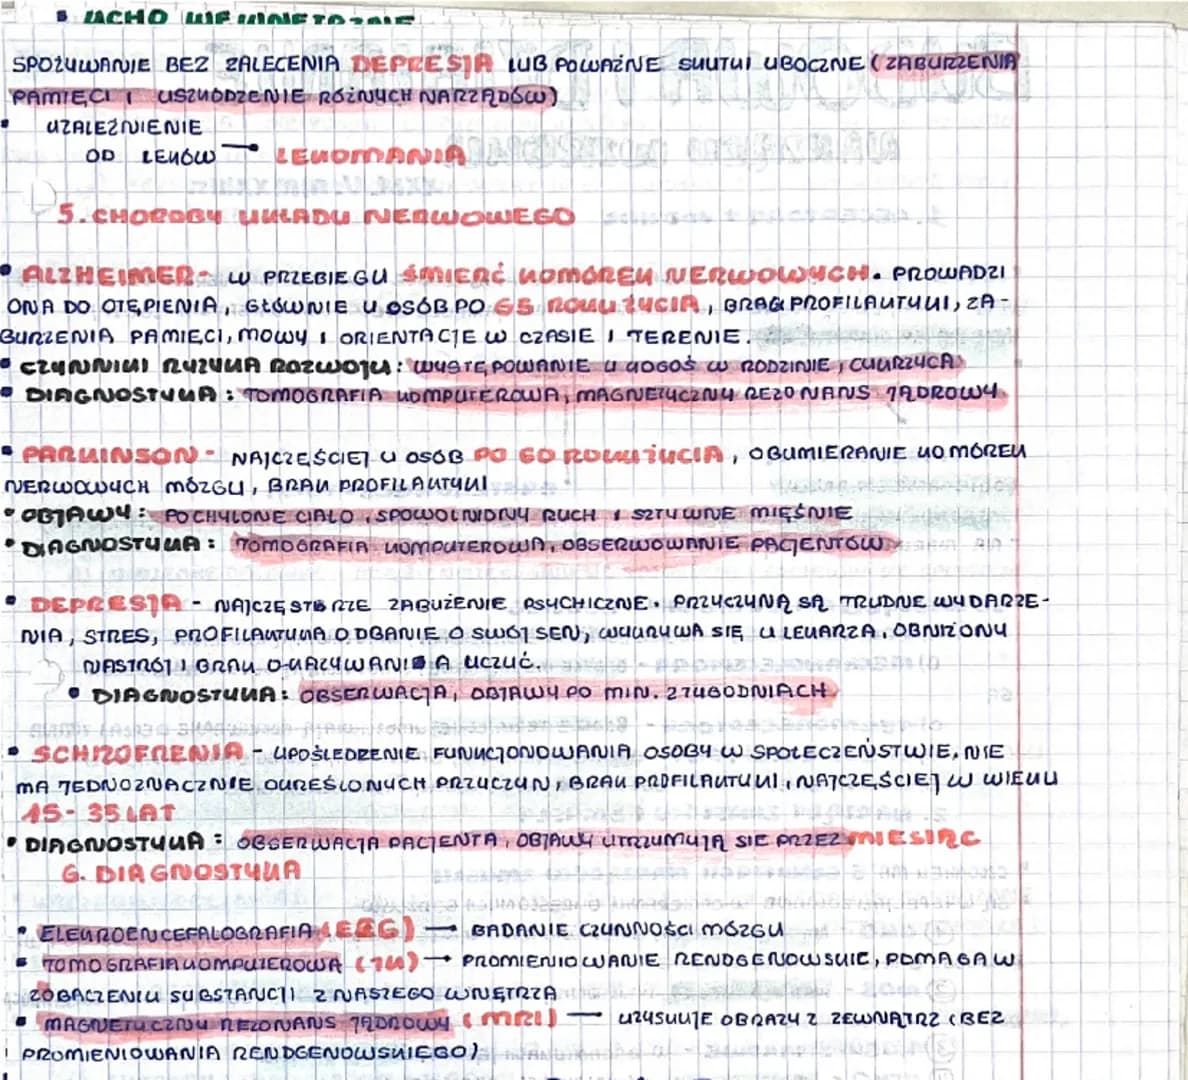 • UCHO WEWNĘTRZNE
SPOŻYWANIE BEZ ZALECENIA DEPRESJA LUB POWAŻNE SKUTKI UBOCZNE (ZABURZENIA
PAMIĘCI I USZKODZENIE RÓŻNYCH NARZĄDÓW)
• UZALEŻNIENIE
OD LEKÓW → LEKOMANIA
5. CHOROBY UKŁADU NERWOWEGO
• ALZHEIMER - W PRZEBIEGU ŚMIERĆ KOMÓREK NERWOWYCH. PROWADZI
ONA DO OTĘPIENIA, GŁÓWNIE U OSÓB PO 65 ROKU ŻYCIA, BRAK PROFILAKTYKI, ZA-
BURZENIA PAMIĘCI, MOWY I ORIENTACJE W CZASIE I TERENIE.
• CZYNNIKI RYZYKA ROZWOJU: WYSTĘPOWANIE U KOGOŚ W RODZINIE, CUKRZYCA
• DIAGNOSTYKA: TOMOGRAFIA KOMPUTEROWA, MAGNETYCZNY REZONANS JĄDROWY
• PARKINSON - NAJCZĘŚCIEJ U OSÓB PO 60 ROKU ŻYCIA, OBUMIERANIE KOMÓREK
NERWOWYCH MÓZGU, BRAK PROFILAKTYKI
• OBJAWY: POCHYLONE CIAŁO, SPOWOLNIONY RUCH I SZTYWNE MIĘŚNIE
• DIAGNOSTYKA: TOMOGRAFIA KOMPUTEROWA, OBSERWOWANIE PACJENTÓW
• DEPRESJA - NAJCZĘSTSRZE ZABUŻENIE PSYCHICZNE. PRZYCZYNĄ SĄ TRUDNE WYDARZE-
NIA, STRES, PROFILAKTYKA ODBANIE O SWÓJ SEN, WYKRYWA SIĘ U LEKARZA, OBNIŻONY
NASTRÓJ I BRAK OKAZYWANIA UCZUĆ.
• DIAGNOSTYKA: OBSERWACJA, OBJAWY PO MIN. 2 TYGODNIACH
• SCHIZOFRENIA - UPOŚLEDZENIE FUNKCJONOWANIA OSOBY W SPOŁECZEŃSTWIE, NIE
MA JEDNOZNACZNIE OKREŚLONYCH PRZYCZYN, BRAK PROFILAKTYKI, NAJCZĘŚCIEJ W WIEKU
15-35 LAT
• DIAGNOSTYKA: OBSERWACJA PACJENTA, OBJAWY UTRZYMUJĄ SIE PRZEZ MIESIĄC
6. DIAGNOSTYKA
• ELEKTROENCEFALOGRAFIA (EEG) → BADANIE CZYNNOŚCI MÓZGU
• TOMOGRAFIA KOMPUTEROWA (TK) → PROMIENIOWANIE RENDGENOWSKIE, POMAGA W
ZOBACZENIU SUBSTANCJI Z NASZEGO WNĘTRZA
• MAGNETYCZNY REZONANS JĄDROWY (MRI) — UZYSKUJE OBRAZY Z ZEWNĄTRZ (BEZ
PROMIENIOWANIA RENDGENOWSKIEGO)